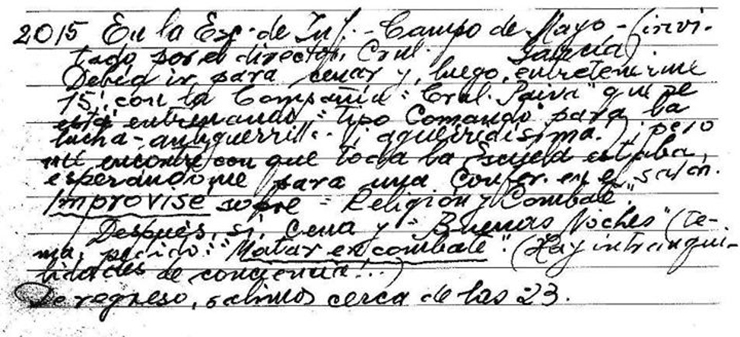 2015 En la Esc. de Inf. - Campo de Mayo - (invi-
tado por el director, Crnl. García)
Debía ir para cenar y, luego, entretenerme
15', con la Compañía "Cral. Paiva" que se
está entrenando, "tipo Comando" para la
lucha - antiguerrill. aguerridísima.); pero
me encontré con que toda la Escuela estaba
esperándome para una Confer. en el salón.
Improvisé sobre "Religión y Combate".
Después, sí, Cena y "Buenas Noches" (te-
ma pedido: "Matar en combate" (Hay intranqui-
lidades de conciencia!..)
De regreso, salimos cerca de las 23.